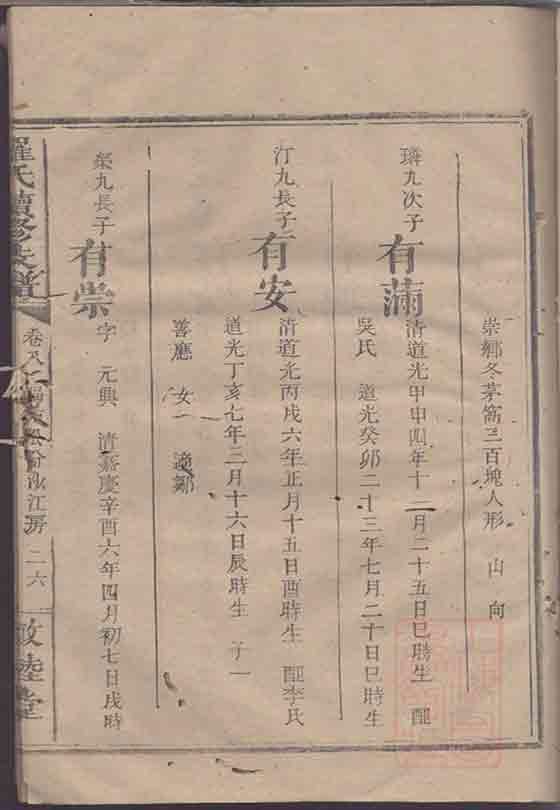 崇鄉冬茅窩三百塊人形 山向
璘九次子
有蒲
清道光甲申四年十二月二十五日巳時生 配
吳氏 道光癸卯二十三年七月二十日巳時生
汀九長子
有安
清道光丙戌六年正月十五日酉時生 配李氏
道光丁亥七年二月十六日辰時生 子一
善應 女一 適鄒
榘九長子
有崇
字 元興 清嘉慶辛酉六年四月初七日戌時
羅氏續修支譜
卷八
江房
二六
敦睦堂